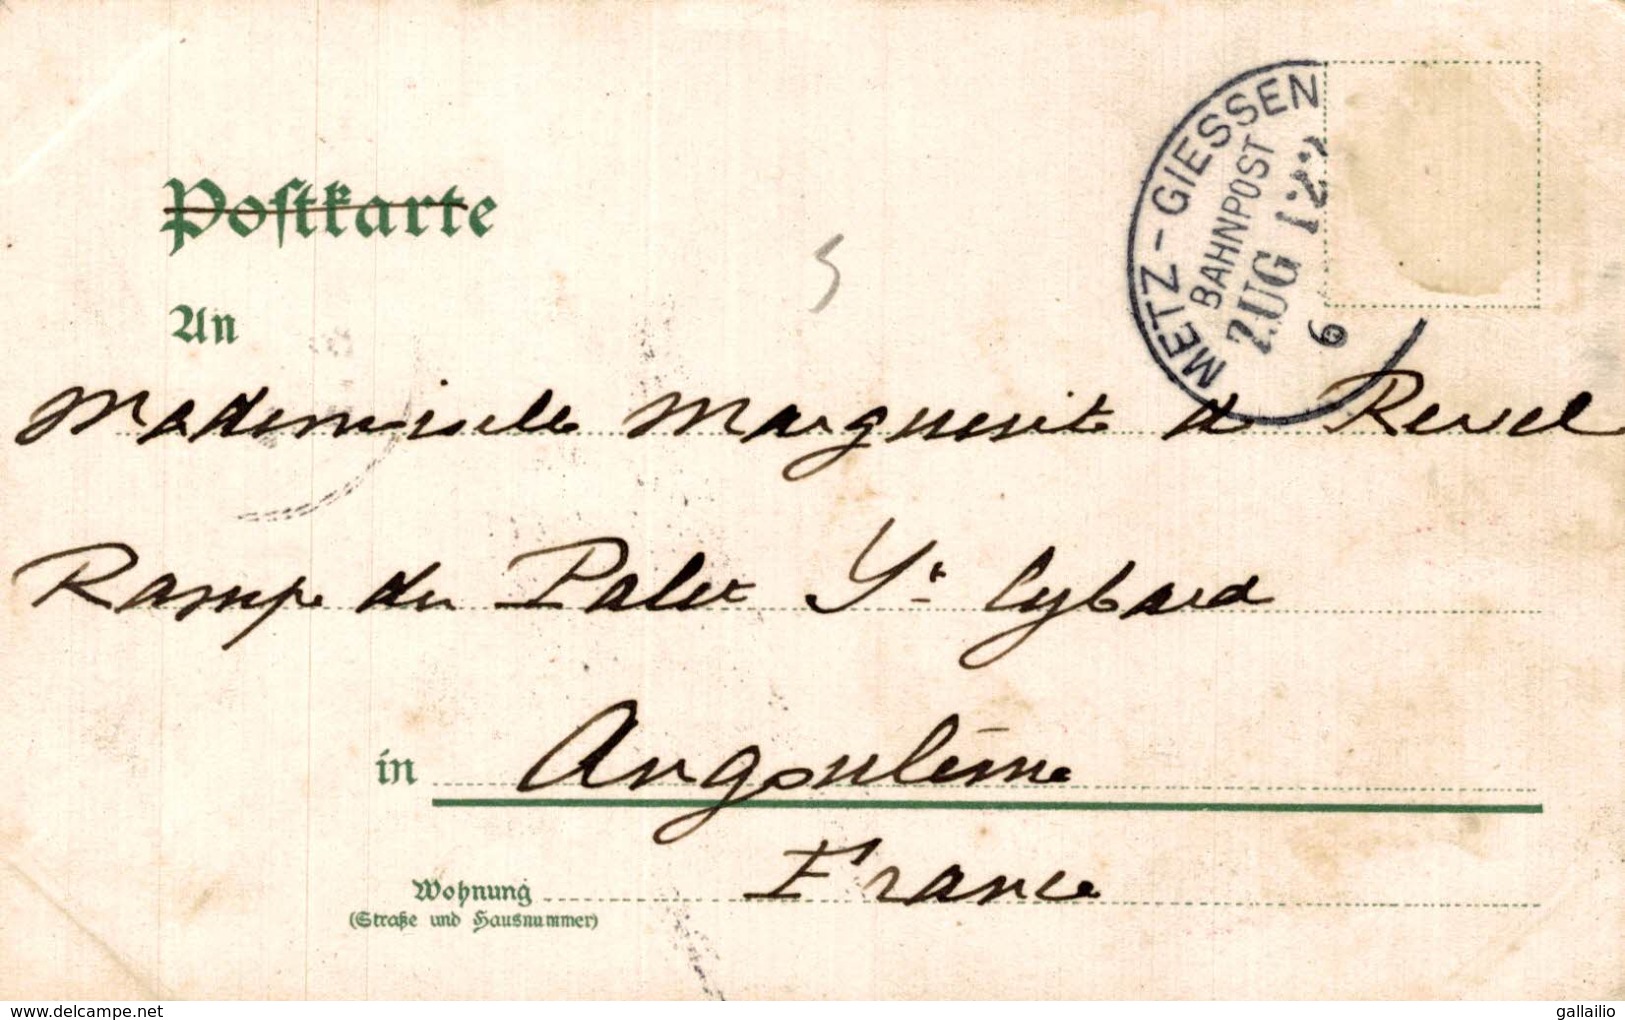 METZ - GIESSEN
BAHNPOST
ZUG 122
6
Postkarte
5
An
Mademoiselle Marguerite de Revel
Rampe du Palet St Cybard
in Angoulême
France
Wohnung
(Straße und Hausnummer)
www.delcampe.net
gallailio